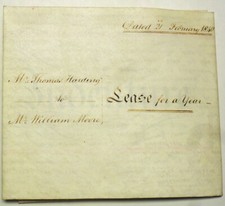 Dated 21 February 18
Mr. Thomas Harding
to
Lease for a Year
Mr. William Moore,